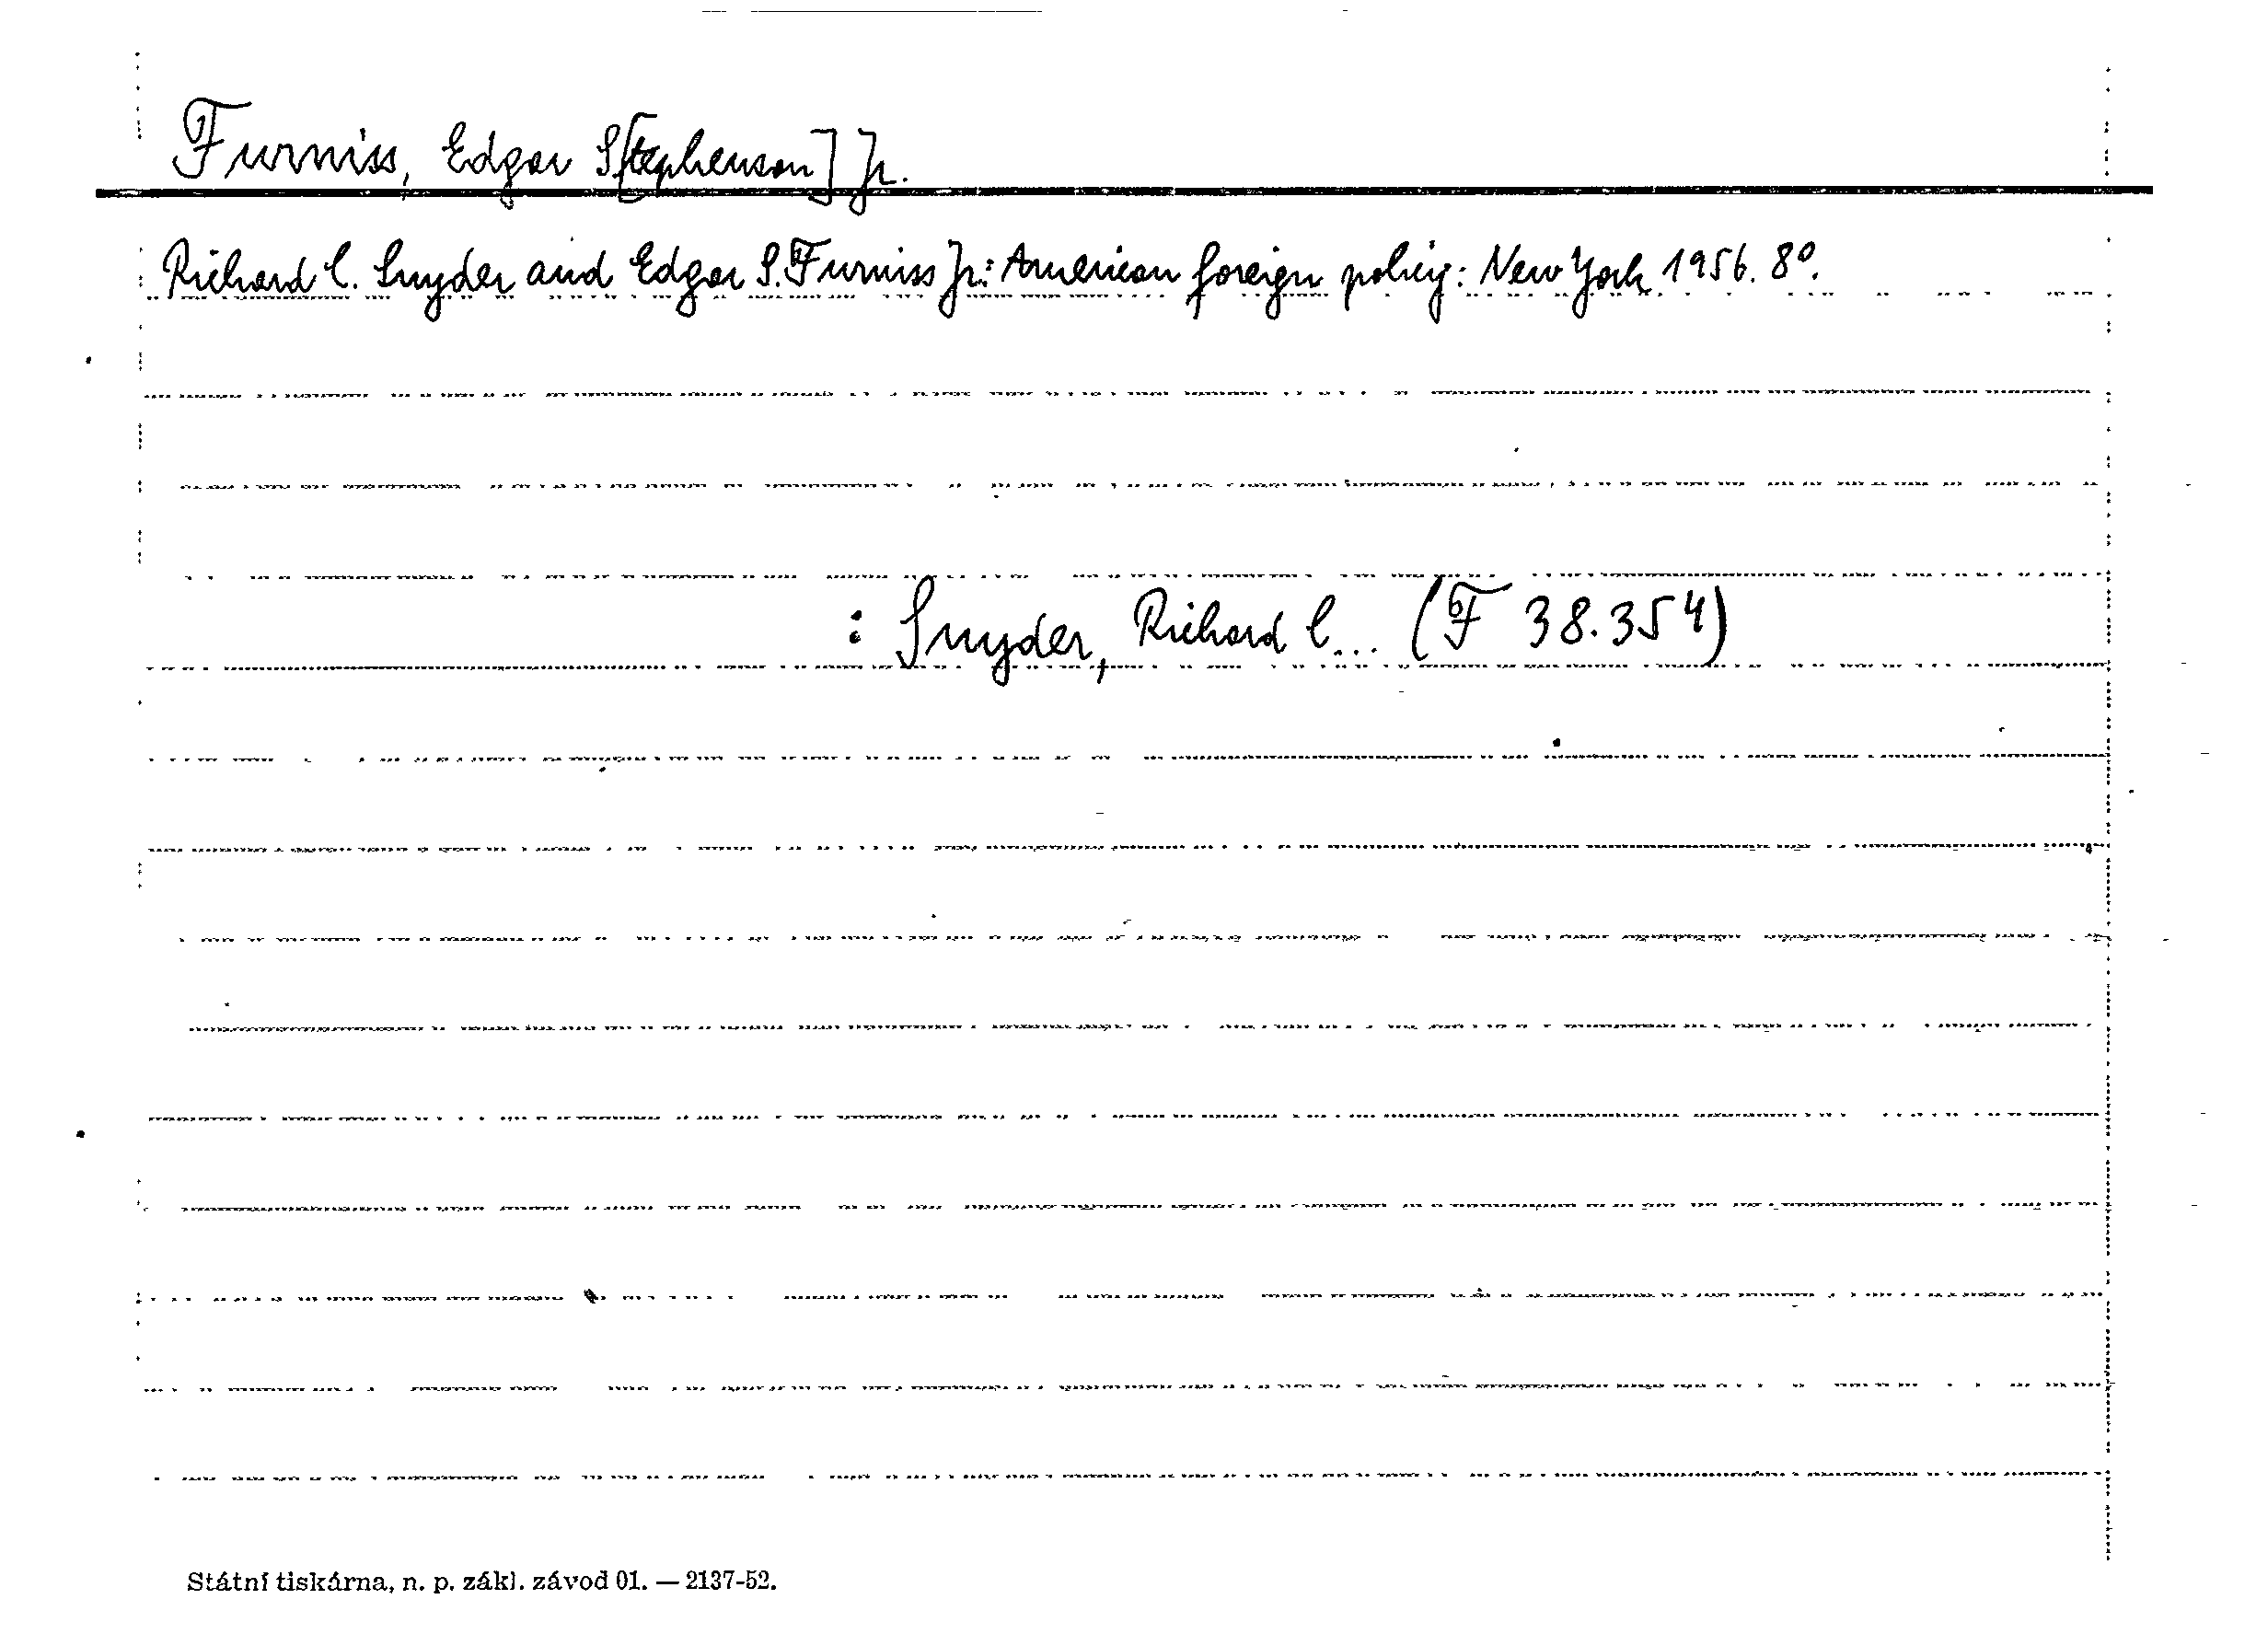 Furniss, Edgar S[tephenson] Jr.
Richard C. Snyder and Edgar S. Furniss Jr.: American foreign policy: New York 1956. 8°.
: Snyder, Richard C... (F 38.354)
Státní tiskárna, n. p. zákl. závod 01. — 2137-52.